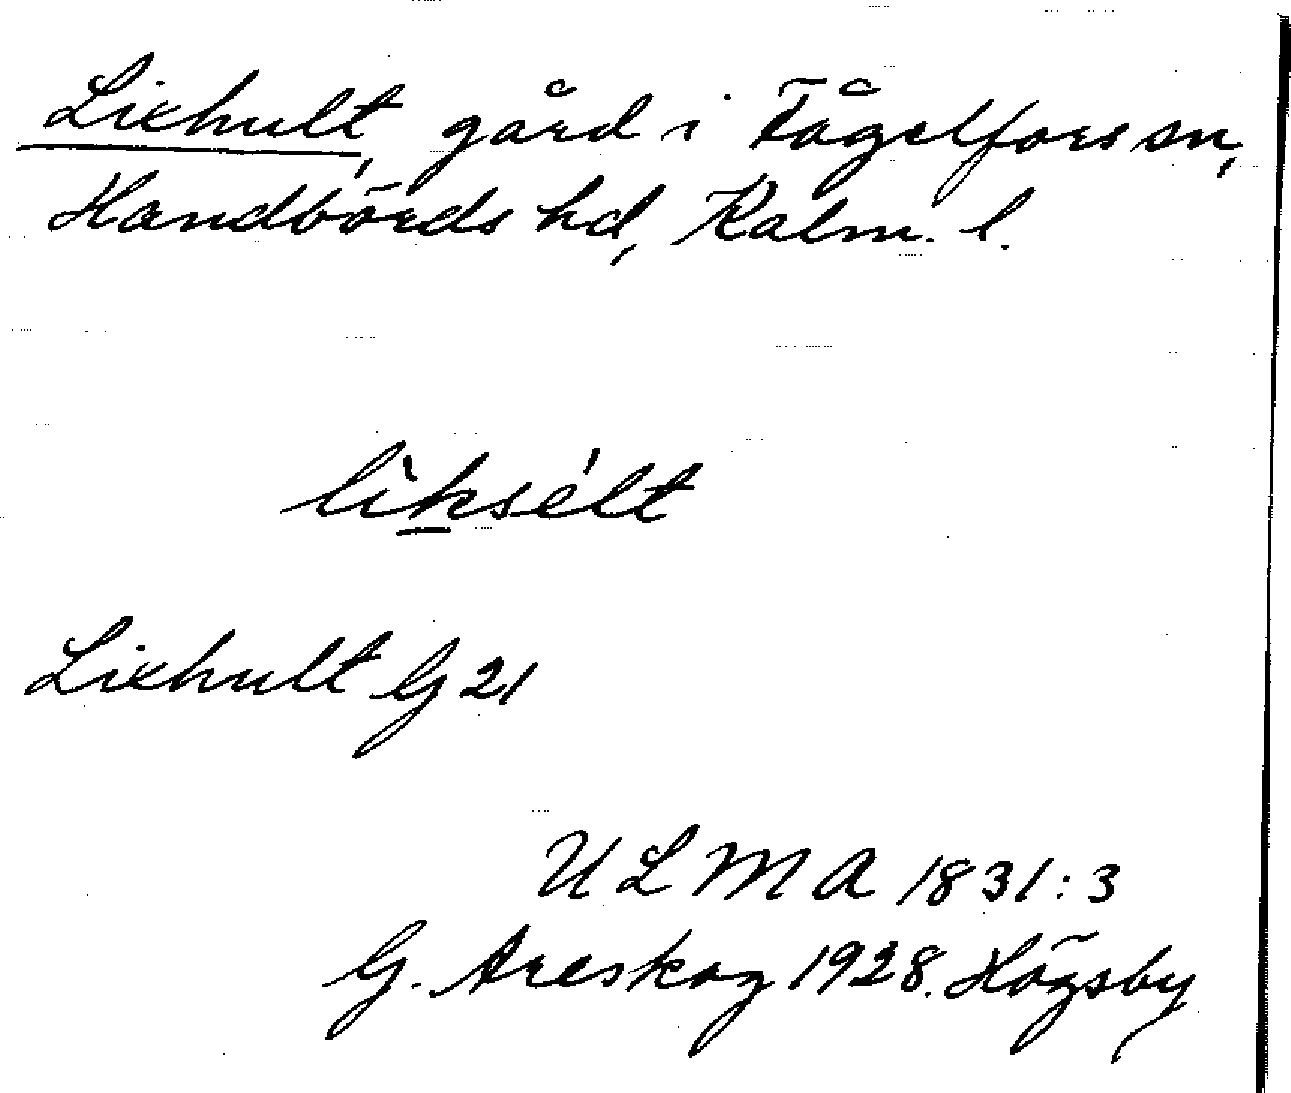 Lixhult, gård i Fågelfors sn,
Handbörds hd, Kalm. l.
lìksélt
Lixhult G 21
ULMA 1831:3
G. Areskog 1928. Högsby